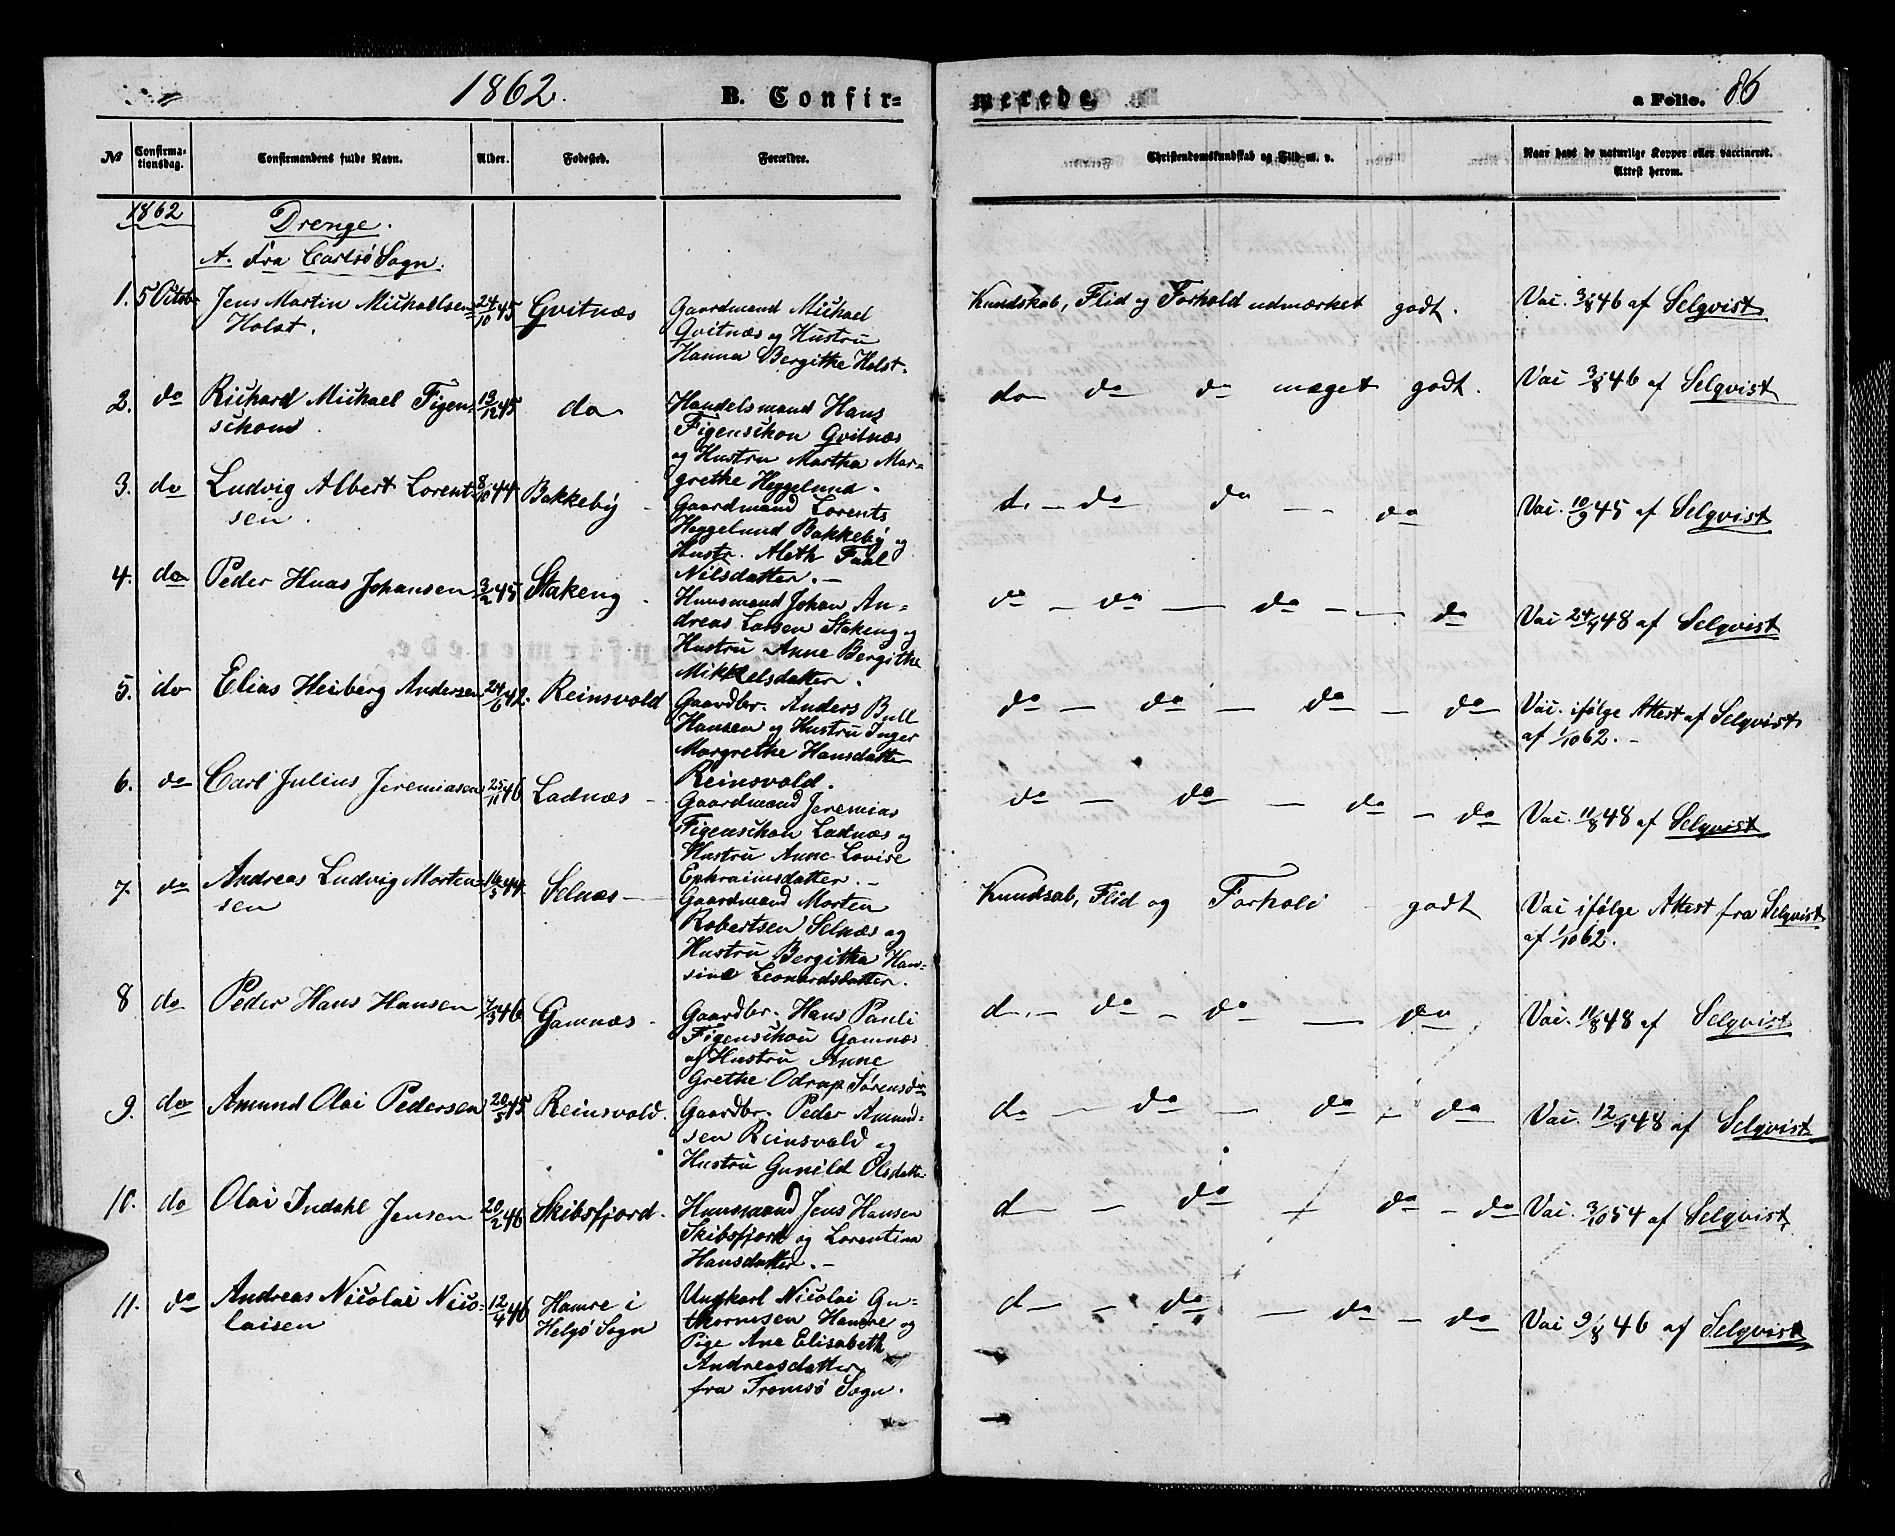 1862. B. Confir=
merede. a Folio. 86
№ Confirma-
tionsdag. Confirmandens fulde Navn. Alder. Fødested. Forældre. Christendomskundskab og Flid m. v. Naar havt de naturlige Kopper eller vaccineret.
Attest herom.
1862 Drenge.
A. Fra Carlsö Sogn.
1. 5 Octob. Jens Martin Michaelsen
Holst.
24/10 45 Gvitnæs
Gaardmand Michael
Qvitnæs og Hustru
Hanna Bergithe Holst.
Kundskab, Flid og Forhold udmærket godt.
Vac. 3/8 46 af Selqvist
2. do Richard Michael Figen=
schou.
13/12 45 do
Handelsmand Hans
Figenschou Qvitnæs
og Hustru Martha Mar=
grethe Heggelund.
do do do meget godt.
Vac 3/8 46 af Selqvist
3. do Ludvig Albert Lorent=
sen.
8/10 44 Bakkeby
Gaardmand Lorents
Heggelund Bakkeby og
Hustr. Aleth
Nilsdatter.
d. - do do - - do
Vac. 10/9 45 af Selqvist
4. do Peder Hans Johansen 3/2 45 Stakeng
Huusmand Johan An=
dreas Larsen Stakeng og
Hustru Anne Bergithe
Mikkelsdatter.
do - do - do - - do
Vac 24/7 48 af Selqvist
5. do Elias Heiberg Andersen 24/6 42. Reinsvold
Gaardbr. Anders Bull
Hansen og Hustru Inger
Margrethe Hansdatter
Reinsvold.
do - do - do - do
Vac. ifølge Attest af Selqvist
af 1/10 62. -
6. do Carl Julius Jeremiasen 25/11 46 Ladnæs
Gaardmand Jeremias
Figenschou Ladnæs og
Hustru Anne Lovise
Ephraimsdatter. -
do - do - do - do
Vac. 11/8 48 af Selqvist
7. do Andreas Ludvig Morten=
sen
16/5 44. Selnæs
Gaardmand Morten
Robertsen Selnæs og
Hustru Bergitha Han=
sine Leonardsdatter.
Kundsab, Flid og Forhold godt
Vac ifølge Attest fra Selqvist
af 1/10 62.
8 do Peder Hans Hansen 7/3 46 Gamnæs
Gaardbr. Hans Pauli
Figenschou Gamnæs
og Hustru Anne
Grethe Odrup Sørensda
d. - do - do - do
Vac. 11/8 48 af Selqvist
9. do Amund Olai Pedersen 20/5 45 Reinsvold.
Gaardbr. Peder Amund=
sen Reinsvold og
Hustru Gunild Olsdatte
do - do - do - do
Vac. 12/7 48 af Selqvist
10. do Olai Indahl Jensen 20/2 46 Skibsfjord.
Huusmand Jens Hansen
Skibsfjord og Lorentina
Hansdatter. -
d - do - do - do
Vac. 3/10 54 af Selqvist
11. do Andreas Nicolai Nico=
laisen
12/4 46 Hamre i
Helgö Sogn
Ungkarl Nicolai Gu=
thormsen Hamre og
Pige Ane Elisabeth
Andreasdatter
fra Tromsö Sogn.
d - do - do - do
Vac 9/8 46 af Selqvist